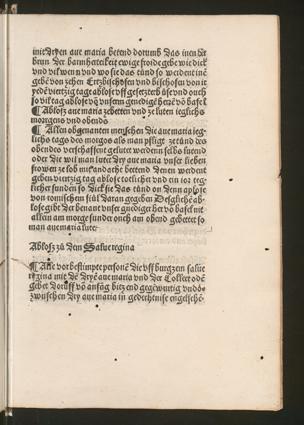 mit dryen aue maria betend dorumb das inen der
brun der barmhertzikeit ewige froide gebe wie dick
vnd vil wenn vnd wo sie das tůnd so werdent inē
geben von zehen Ertzbischofen vnd bischofen von it
yedē viertzig tag ablosz vff gesetzter bůse vnd ouch
so vil tag ablosz vō vnserm genedigē herrē vō basel
¶ Ablosz aue maria zebetten vnd ze luten ieglichs
morgens vnd obends
¶ Allen obgenanten menschen die aue maria ieg
lichs tages des morgos als man pfligt ze tůnd des
obendes verschafft gelutet werdenn selbs lutend
oder die wil man lutet dry aue maria vnser lieben
frowen ze lob mit andacht bettend Denen werdent
geben viertzig tag ablosz totlicher vnd ein ior teg
licher sunden so dick sie das tůnd on Denn aplosz
von romischem stůl daran gegeben Desgliche ab
losz gibt der benant vnser gnediger her vō basel nit
allein am morge sunder ouch am obend gebettet so
man aue maria lutet
Ablosz zů dem Salue regina
¶ Alle vor bestimpte personē die vff burg zem salue
regina mit dē dryē aue maria vnd der Collect odē
gebet doruff vō anfāg bitz end gegēwurtig vnd do
zwuschen dry aue maria in gedechtnisse engelschē